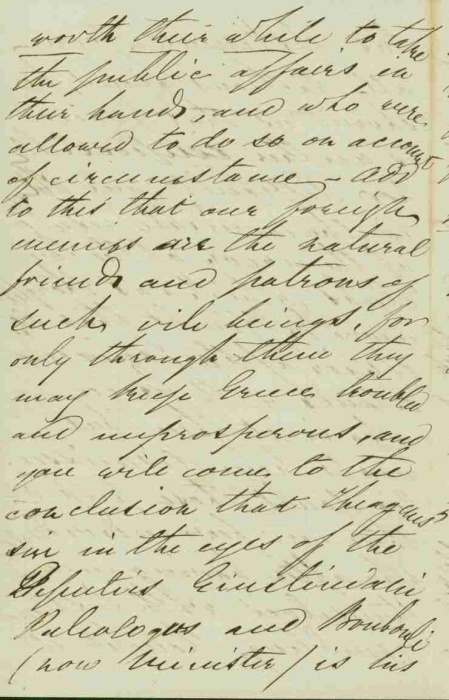 worth their while to take
the public affairs in
their hands, and who were
allowed to do so on account
of circumstance - add
to this that our foreign
enemies are the natural
friends and patrons of
such vile beings, for
only through them they
may keep Greece troubled
and unprosperous, and
you will come to the
conclusion that
sin in the eyes of the
Deputies
Paleologus and Bonbouli
(now Minister) is his